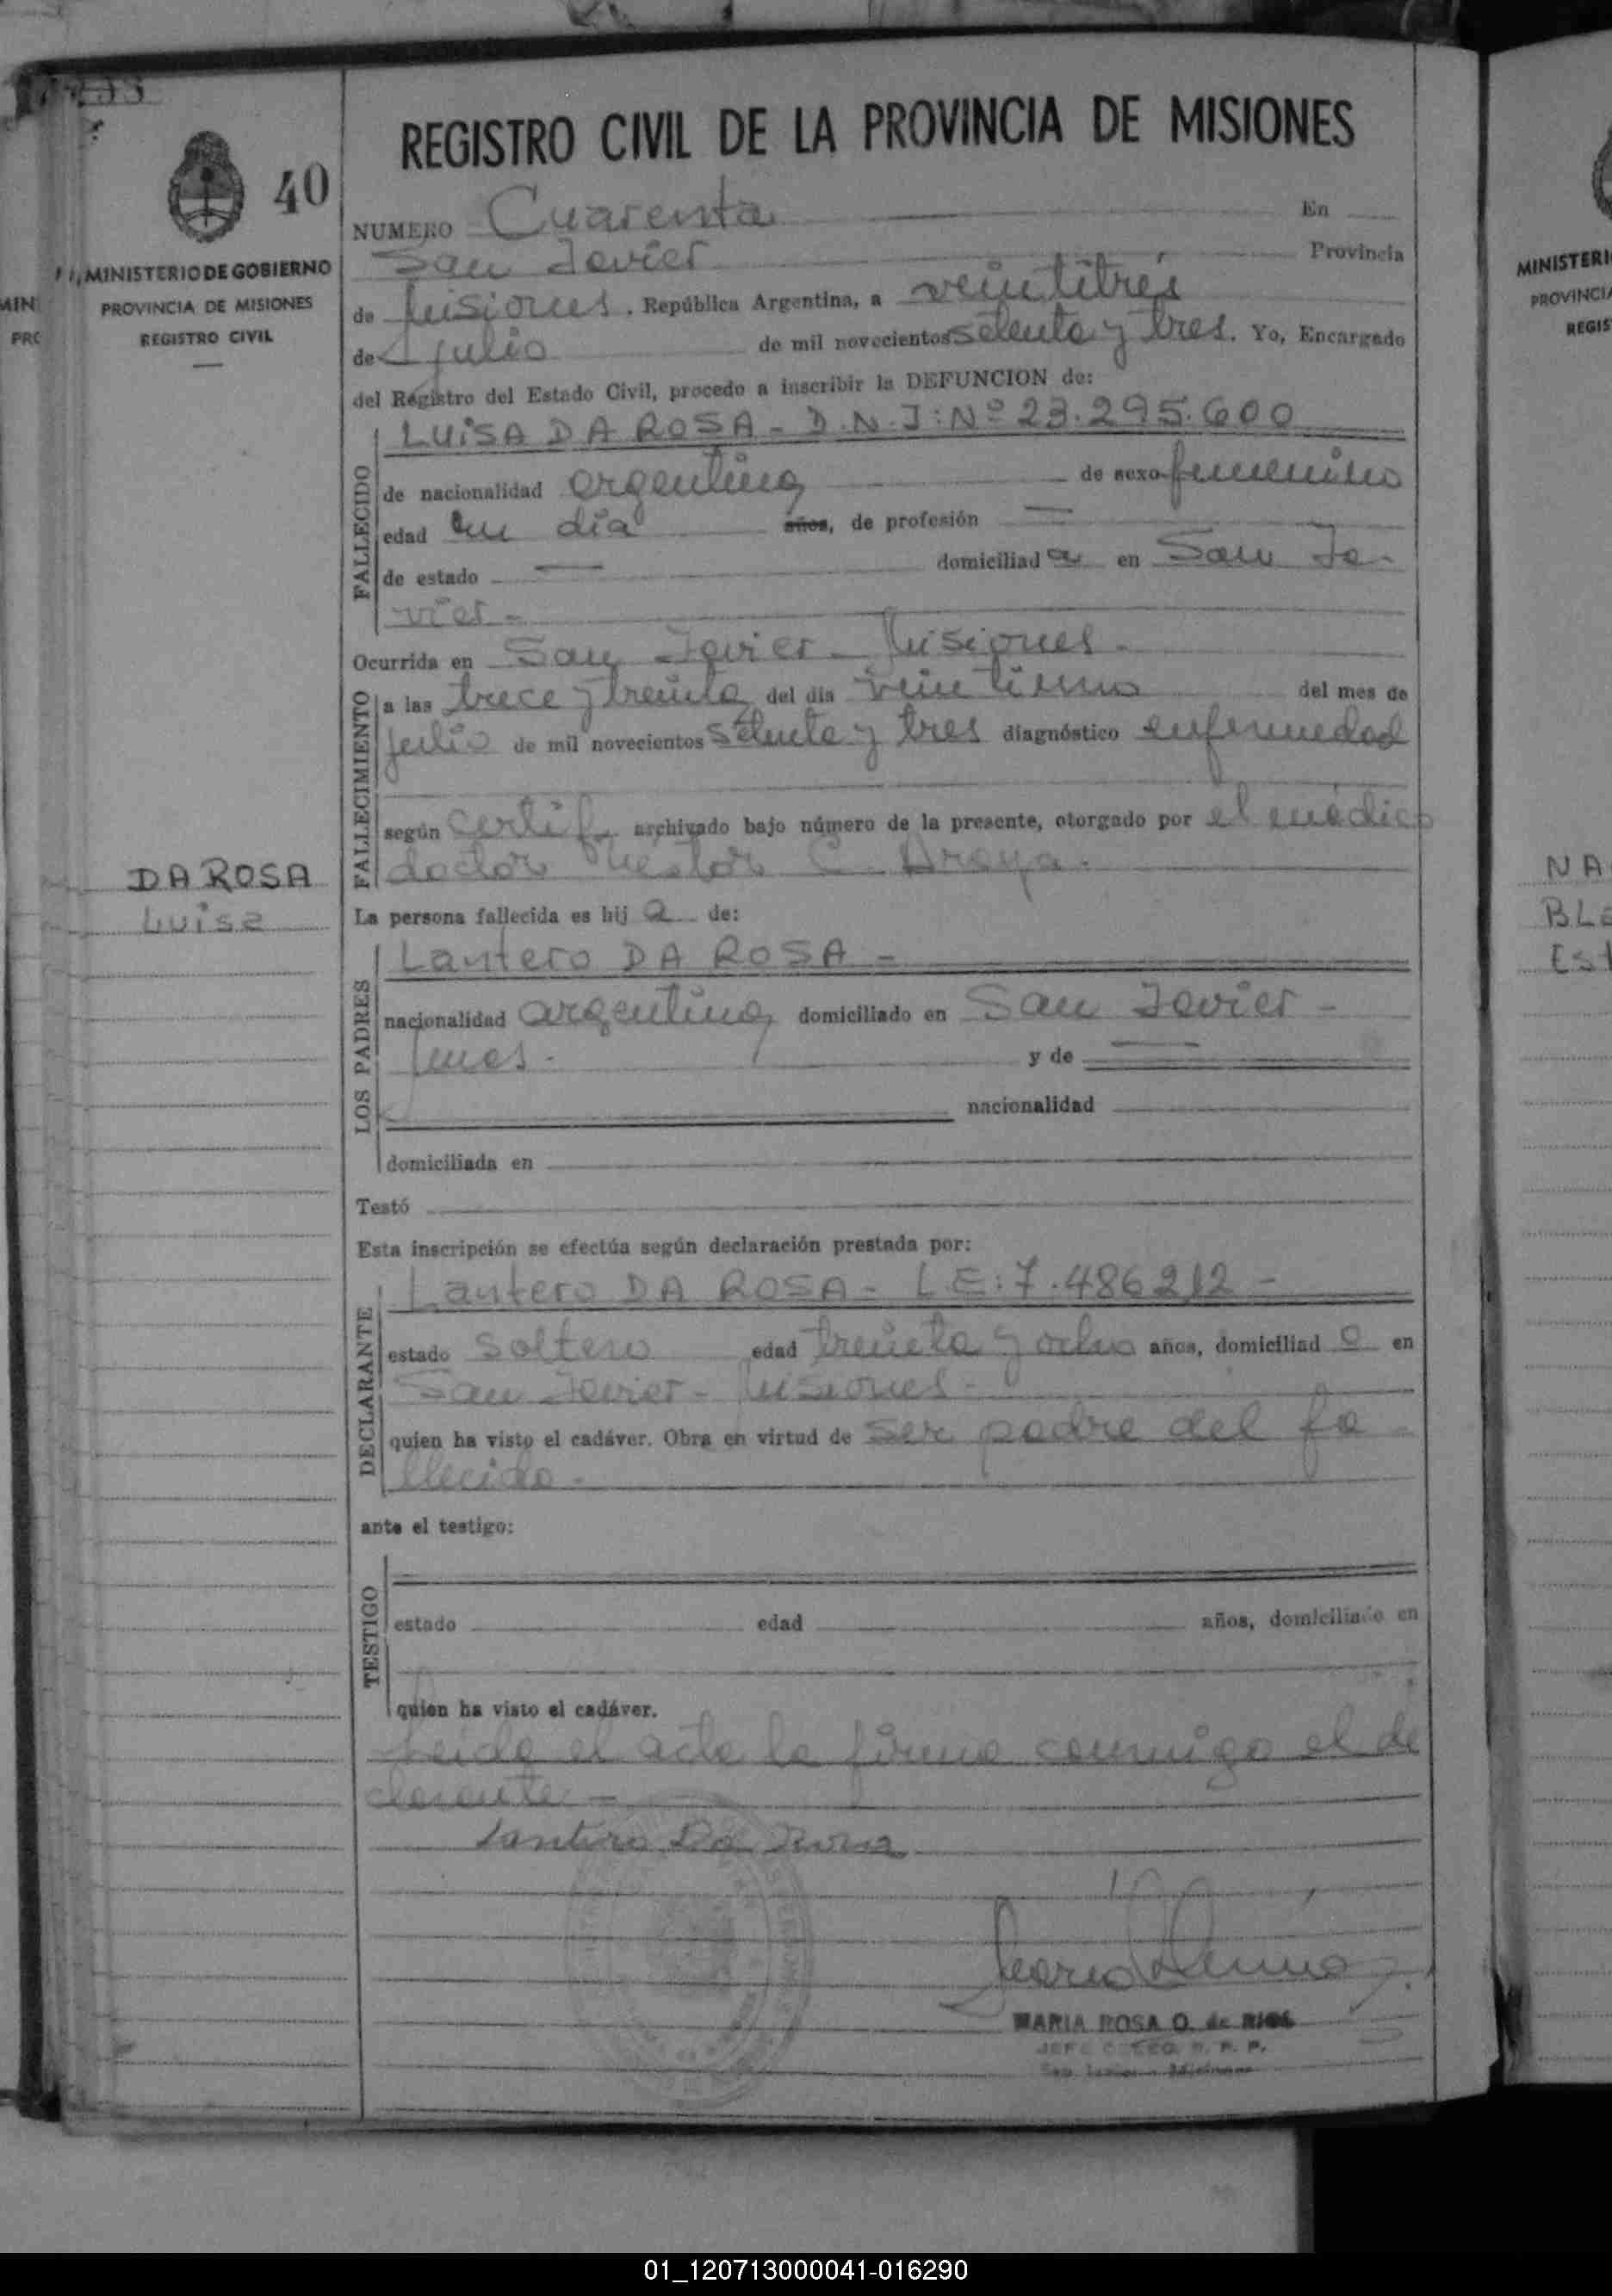 40
MINISTERIO DE GOBIERNO
PROVINCIA DE MISIONES
REGISTRO CIVIL
DA ROSA
Luisa
REGISTRO CIVIL DE LA PROVINCIA DE MISIONES
NUMERO Cuarenta En
San Javier Provincia
de Misiones, República Argentina, a veintitrés
de julio de mil novecientos setenta y tres. Yo, Encargado
del Registro del Estado Civil, procedo a inscribir la DEFUNCION de:
FALLECIDO
LUISA DA ROSA - D.N.I: Nº 23.295.600
de nacionalidad argentina de sexo femenino
edad un día años, de profesión —
de estado — domiciliada en San Ja-
vier -
Ocurrida en San Javier - Misiones -
FALLECIMIENTO
a las trece y treinta del día veintiuno del mes de
julio de mil novecientos setenta y tres diagnóstico enfermedad
según certif. archivado bajo número de la presente, otorgado por el médico
doctor Nestor C. Araya.
La persona fallecida es hija de:
LOS PADRES
Lantero DA ROSA -
nacionalidad argentina domiciliado en San Javier -
Mnes. y de —
nacionalidad
domiciliada en
Testó
Esta inscripción se efectúa según declaración prestada por:
DECLARANTE
Lantero DA ROSA - LE: 7.486212 -
estado soltero edad treinta y ocho años, domiciliado en
San Javier - Misiones -
quien ha visto el cadáver. Obra en virtud de ser padre del fa-
llecido -
ante el testigo:
TESTIGO
estado edad años, domiciliado en
quien ha visto el cadáver.
Leida el acta la firma conmigo el de
clarante -
Lantero Da Rosa
MARIA ROSA O. de RIOS
San Javier - Misiones
MINISTERI
PROVINCIA
REGIS
NA
BLE
Est
01_120713000041-016290